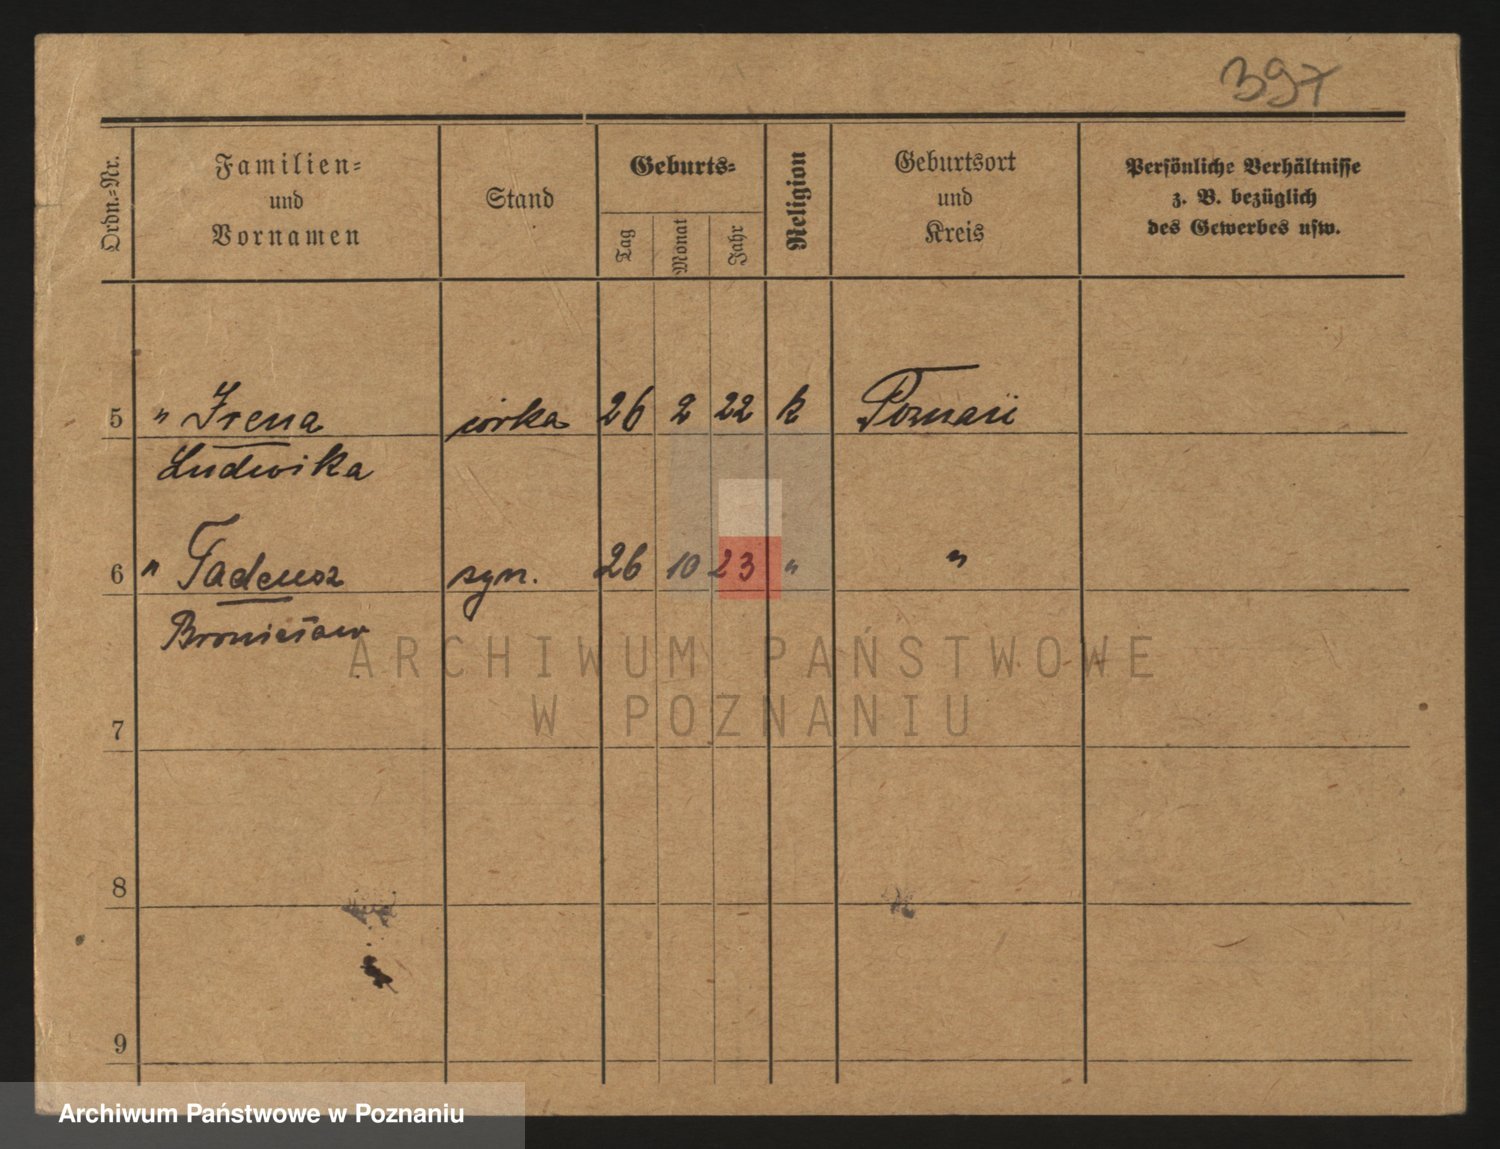 397
Ordn.-Nr.
Familien-
und
Vornamen
Stand
Geburts-
Tag
Monat
Jahr
Religion
Geburtsort
und
Kreis
Persönliche Verhältnisse
z. B. bezüglich
des Gewerbes usw.
5 " Irena córka 26 2 22 k Poznań
Ludwika
6 " Tadeusz syn. 26 10 23 " "
Bronisław
ARCHIWUM PAŃSTWOWE
W POZNANIU
7
8
9
Archiwum Państwowe w Poznaniu